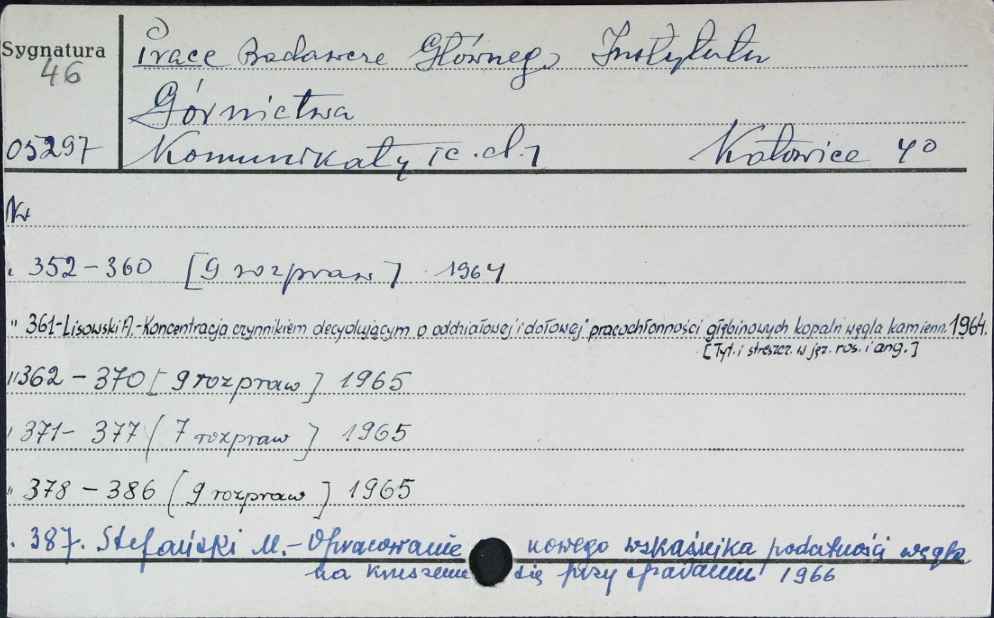 Sygnatura
46
05297
Prace Badawcze Głównego Instytutu
Górnictwa
Komunikaty c.d. 1 Katowice 40
Nr
352-360 [9 rozpraw] 1964
" 361-Lisowski A.-Koncentracja czynnikiem decydującym o oddziałowej i dołowej pracochłonności głębinowych kopalń węgla kamienn. 1964.
[Tyt. i streszcz. w jęz. ros. i ang.]
" 362-370 [9 rozpraw] 1965
" 371-377 [7 rozpraw] 1965
" 378-386 [9 rozpraw] 1965
387. Stefański M.-Opracowanie nowego wskaźnika podatności węgla
na kruszenie się przy spadaniu 1966